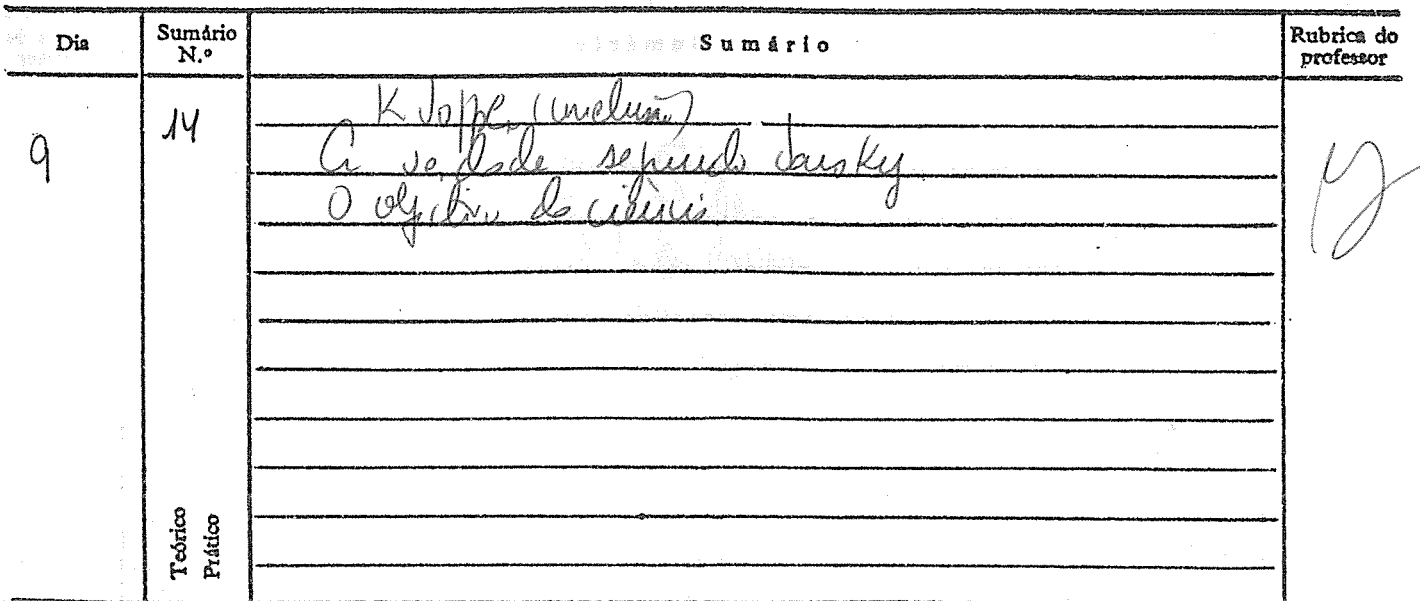 Dia
Sumário N.º
Sumário
Rubrica do professor
9
14
K Popper (conclusão)
A verdade segundo Tarsky
O objectivo da ciência
Teórico
Prático